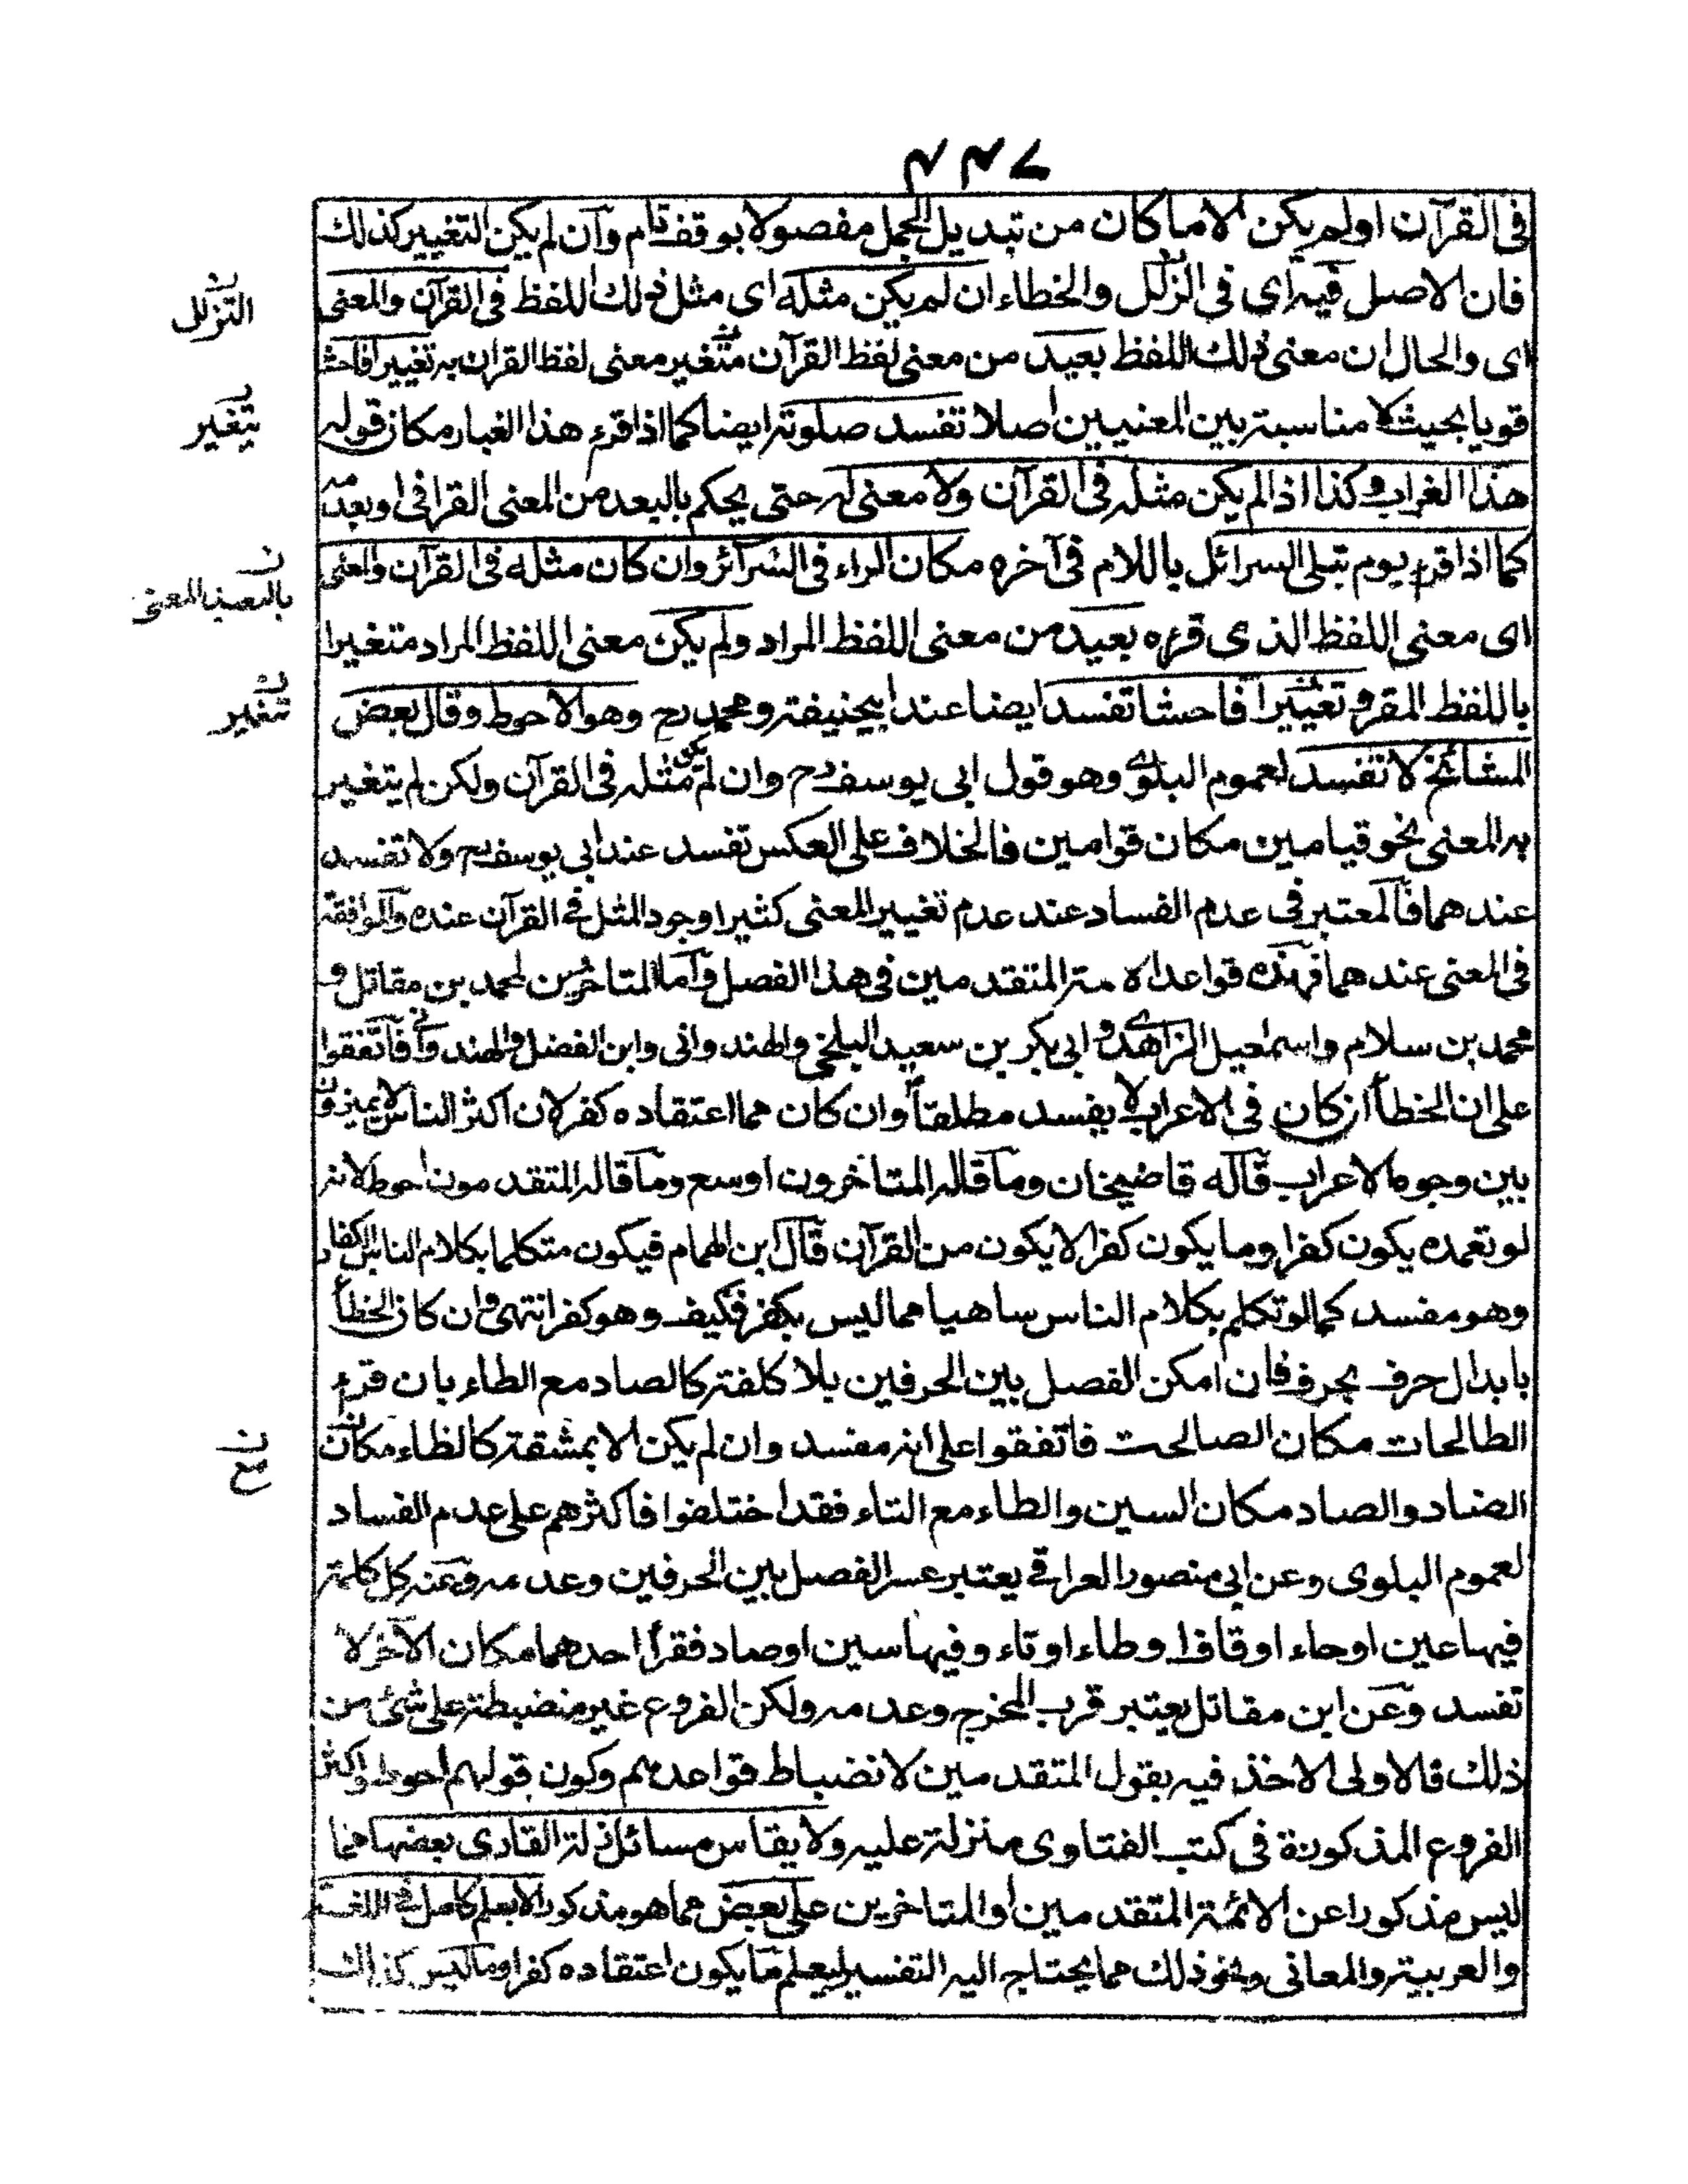 ۴۴۷
في القرآن اولم يكن الاما كان من تبديل الجمل مفصولا بوقف تام وان لم يكن التغيير كذلك
فان الاصل فيه اى في الزلل والخطاء ان لم يكن مثله اى مثل ذلك اللفظ في القرآن والمعنى
اى والحال ان معنى ذلك اللفظ بعيد من معنى لفظ القرآن متغير معنى لفظ القران به تغييرا فاحشا
قويا بحيث لا مناسبة بين المعنيين اصلا تفسد صلوته ايضا كما اذا قرء هذا الغبار مكان قوله
هذا الغراب وكذا اذا لم يكن مثله في القرآن ولا معنى له حتى يحكم بالبعد من المعنى القرانى او بعدمه
كما اذا قرء يوم تبلى السرائل باللام في آخره مكان الراء في السرآئر وان كان مثله في القرآن والمعنى
اى معنى اللفظ الذى قرءه بعيد من معنى اللفظ المراد ولم يكن معنى اللفظ المراد متغيرا
باللفظ المقرو تغييرا فاحشا تفسد ايضا عند ابيحنيفة ومحمد رح وهو الاحوط وقال بعض
المشائخ لا تفسد لعموم البلوى وهو قول ابى يوسف رح وان لم يكن مثله في القرآن ولكن لم يتغير
به المعنى نحو قيامين مكان قوامين فالخلاف على العكس تفسد عند ابى يوسف رح ولا تفسد
عندهما فالمعتبر في عدم الفساد عند عدم تغيير المعنى كثيرا وجود المثل في القرآن عنده والموافقة
في المعنى عندهما فهذه قواعد الائمة المتقدمين في هذا الفصل واما المتاخرين لمحمد بن مقاتل و
محمد بن سلام واسمعيل الزاهدى وابى بكر بن سعيد البلخى والهندوانى وابن الفضل والهندوانى فاتفقوا
على ان الخطأ ان كان في الاعراب لا يفسد مطلقا وان كان مما اعتقاده كفر لان اكثر الناس لا يميزون
بين وجوه الاعراب قاله قاضيخان وما قاله المتاخرون اوسع وما قاله المتقدمون احوط لانه
لو تعمده يكون كفرا وما يكون كفرا لا يكون من القرآن قال ابن الهمام فيكون متكلما بكلام الناس الكفار
وهو مفسد كما لو تكلم بكلام الناس ساهيا مما ليس بكفر فكيف وهو كفر انتهى وان كان الخطأ
بابدال حرف بحرف فان امكن الفصل بين الحرفين بلا كلفة كالصاد مع الطاء بان قرء
الطالحات مكان الصالحت فاتفقوا على انه مفسد وان لم يكن الا بمشقة كالظاء مكان
الضاد والصاد مكان السين والطاء مع التاء فقد اختلفوا فاكثرهم على عدم الفساد
لعموم البلوى وعن ابى منصور العراقى يعتبر عسر الفصل بين الحرفين وعدمه وعنه كل كلمة
فيها عين او حاء او قاف او طاء او تاء وفيها سين او صاد فقرأ احدهما مكان الآخر لا
تفسد وعن ابن مقاتل يعتبر قرب المخرج وعدمه ولكن الفروع غير منضبطة على شئ من
ذلك فالاولى الاخذ فيه بقول المتقدمين لانضباط قواعدهم وكون قولهم احوط واكثر
الفروع المذكورة في كتب الفتاوى منزلة عليه ولا يقاس مسائل زلة القارى بعضها مما
ليس مذكورا عن الائمة المتقدمين او المتاخرين على بعض مما هو مذكور الا بعلم كامل في اللغة
والعربية والمعانى ونحو ذلك مما يحتاج اليه التفسير ليعلم ما يكون اعتقاده كفرا وما ليس كذلك
ن
التزلل
ن
يتغير
ن
بالبعد المعنى
ن
تتغير
ن
مع